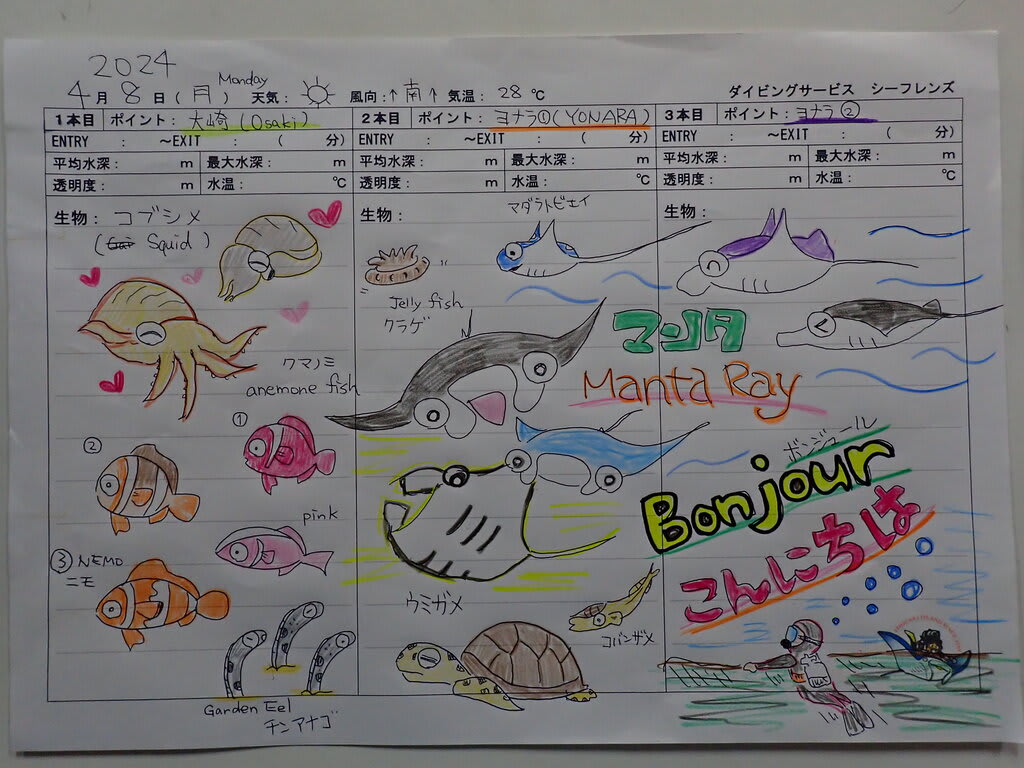 2024
4月 8日(月) Monday 天気: 風向:↑南↑ 気温: 28℃ ダイビングサービス シーフレンズ
1本目 ポイント: 大崎(Osaki) 2本目 ポイント: ヨナラ①(YONARA) 3本目 ポイント: ヨナラ②
ENTRY : ~EXIT : ( 分) ENTRY : ~EXIT : ( 分) ENTRY : ~EXIT : ( 分)
平均水深: m 最大水深: m 平均水深: m 最大水深: m 平均水深: m 最大水深: m
透明度: m 水温: ℃ 透明度: m 水温: ℃ 透明度: m 水温: ℃
生物: コブシメ
(Squid)
クマノミ
anemone fish
①
②
pink
③ NEMO
ニモ
Garden Eel
チンアナゴ
生物:
マダラトビエイ
Jelly fish
クラゲ
ウミガメ
コバンザメ
生物:
マンタ
Manta Ray
ボンジュール
Bonjour
こんにちは